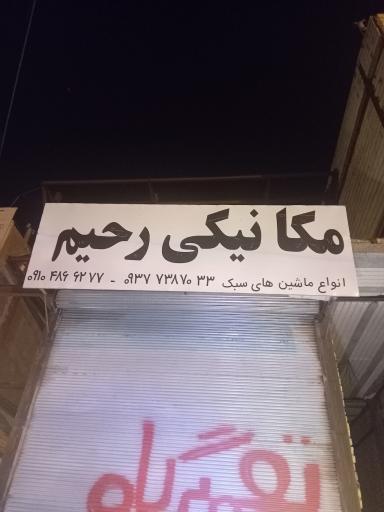 مکانیکی رحیم
انواع ماشین های سبک ۰۹۳۷ ۷۳۸۷۰ ۳۳ - ۰۹۱۰ ۴۸۶ ۶۲ ۷۷